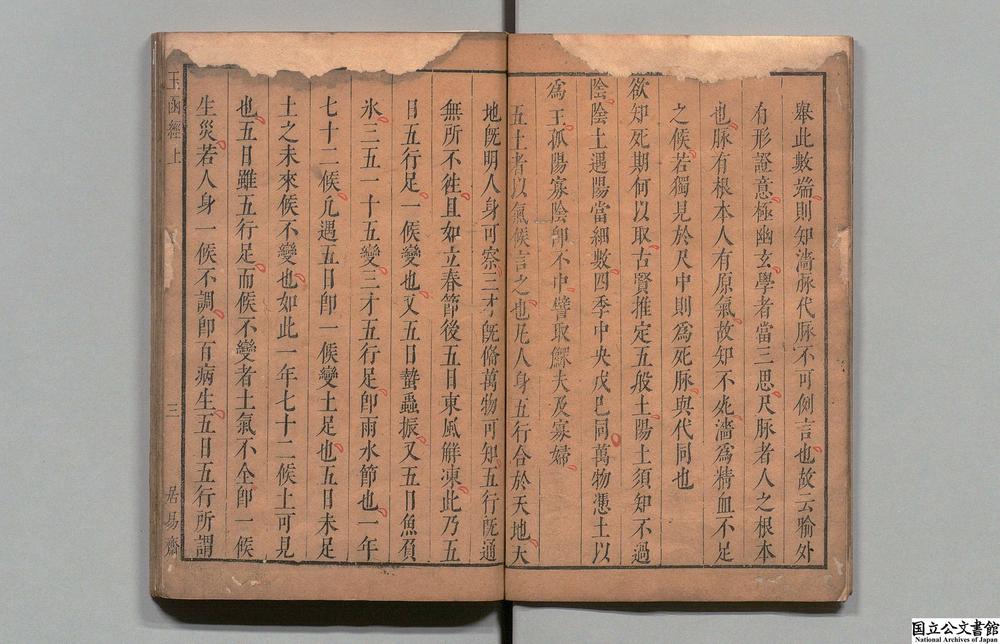 舉此數端則知濇脉代脉不可例言也故云喻外
有形證意極幽玄學者當三思尺脉者人之根本
也脉有根本人有原氣故知不死濇爲精血不足
之候若獨見於尺中則爲死脉與代同也
欲知死期何以取古賢推定五般土陽土須知不過
陰陰土遇陽當細數四季中央戊巳同萬物憑土以
爲王孤陽寡陰卽不中譬取鰥夫及寡婦
五土者以氣候言之也凡人身五行合於天地大
地旣明人身可察三才旣俻萬物可知五行旣通
無所不徃且如立春節後五日東風觧凍此乃五
日五行足一候變也又五日蟄蟲振又五日魚負
氷三五一十五變三才五行足卽雨水節也一年
七十二候凢遇五日卽一候變土足也五日未足
土之未來候不變也如此一年七十二候土可見
也五日雖五行足而候不變者土氣不全卽一候
生災若人身一候不調卽百病生五日五行所謂
玉函經上
三
居易齋
国立公文書館
National Archives of Japan